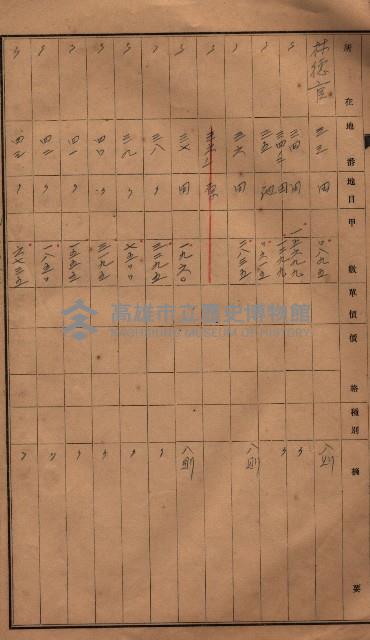 所在 地番 地目 甲數 單價 價格 種別 摘要
林德官 三三 田 〇八九五 八則
〃 三四 田 一五六九九 〃
〃 三四ノ二 田 一二九九 〃
〃 三五 池 〇六一五
〃 三六 田 三八三五 八則
〃 三七 田 一九六〇 八則
〃 三八 〃 三二九五 〃
〃 三九 〃 七五〇〇 〃
〃 四〇 〃 三一九五 〃
〃 四一 〃 一五五五 〃
〃 四二 〃 一八五〇 〃
〃 四三 〃 六七三五 〃
高雄市立歷史博物館
KAOHSIUNG MUSEUM OF HISTORY